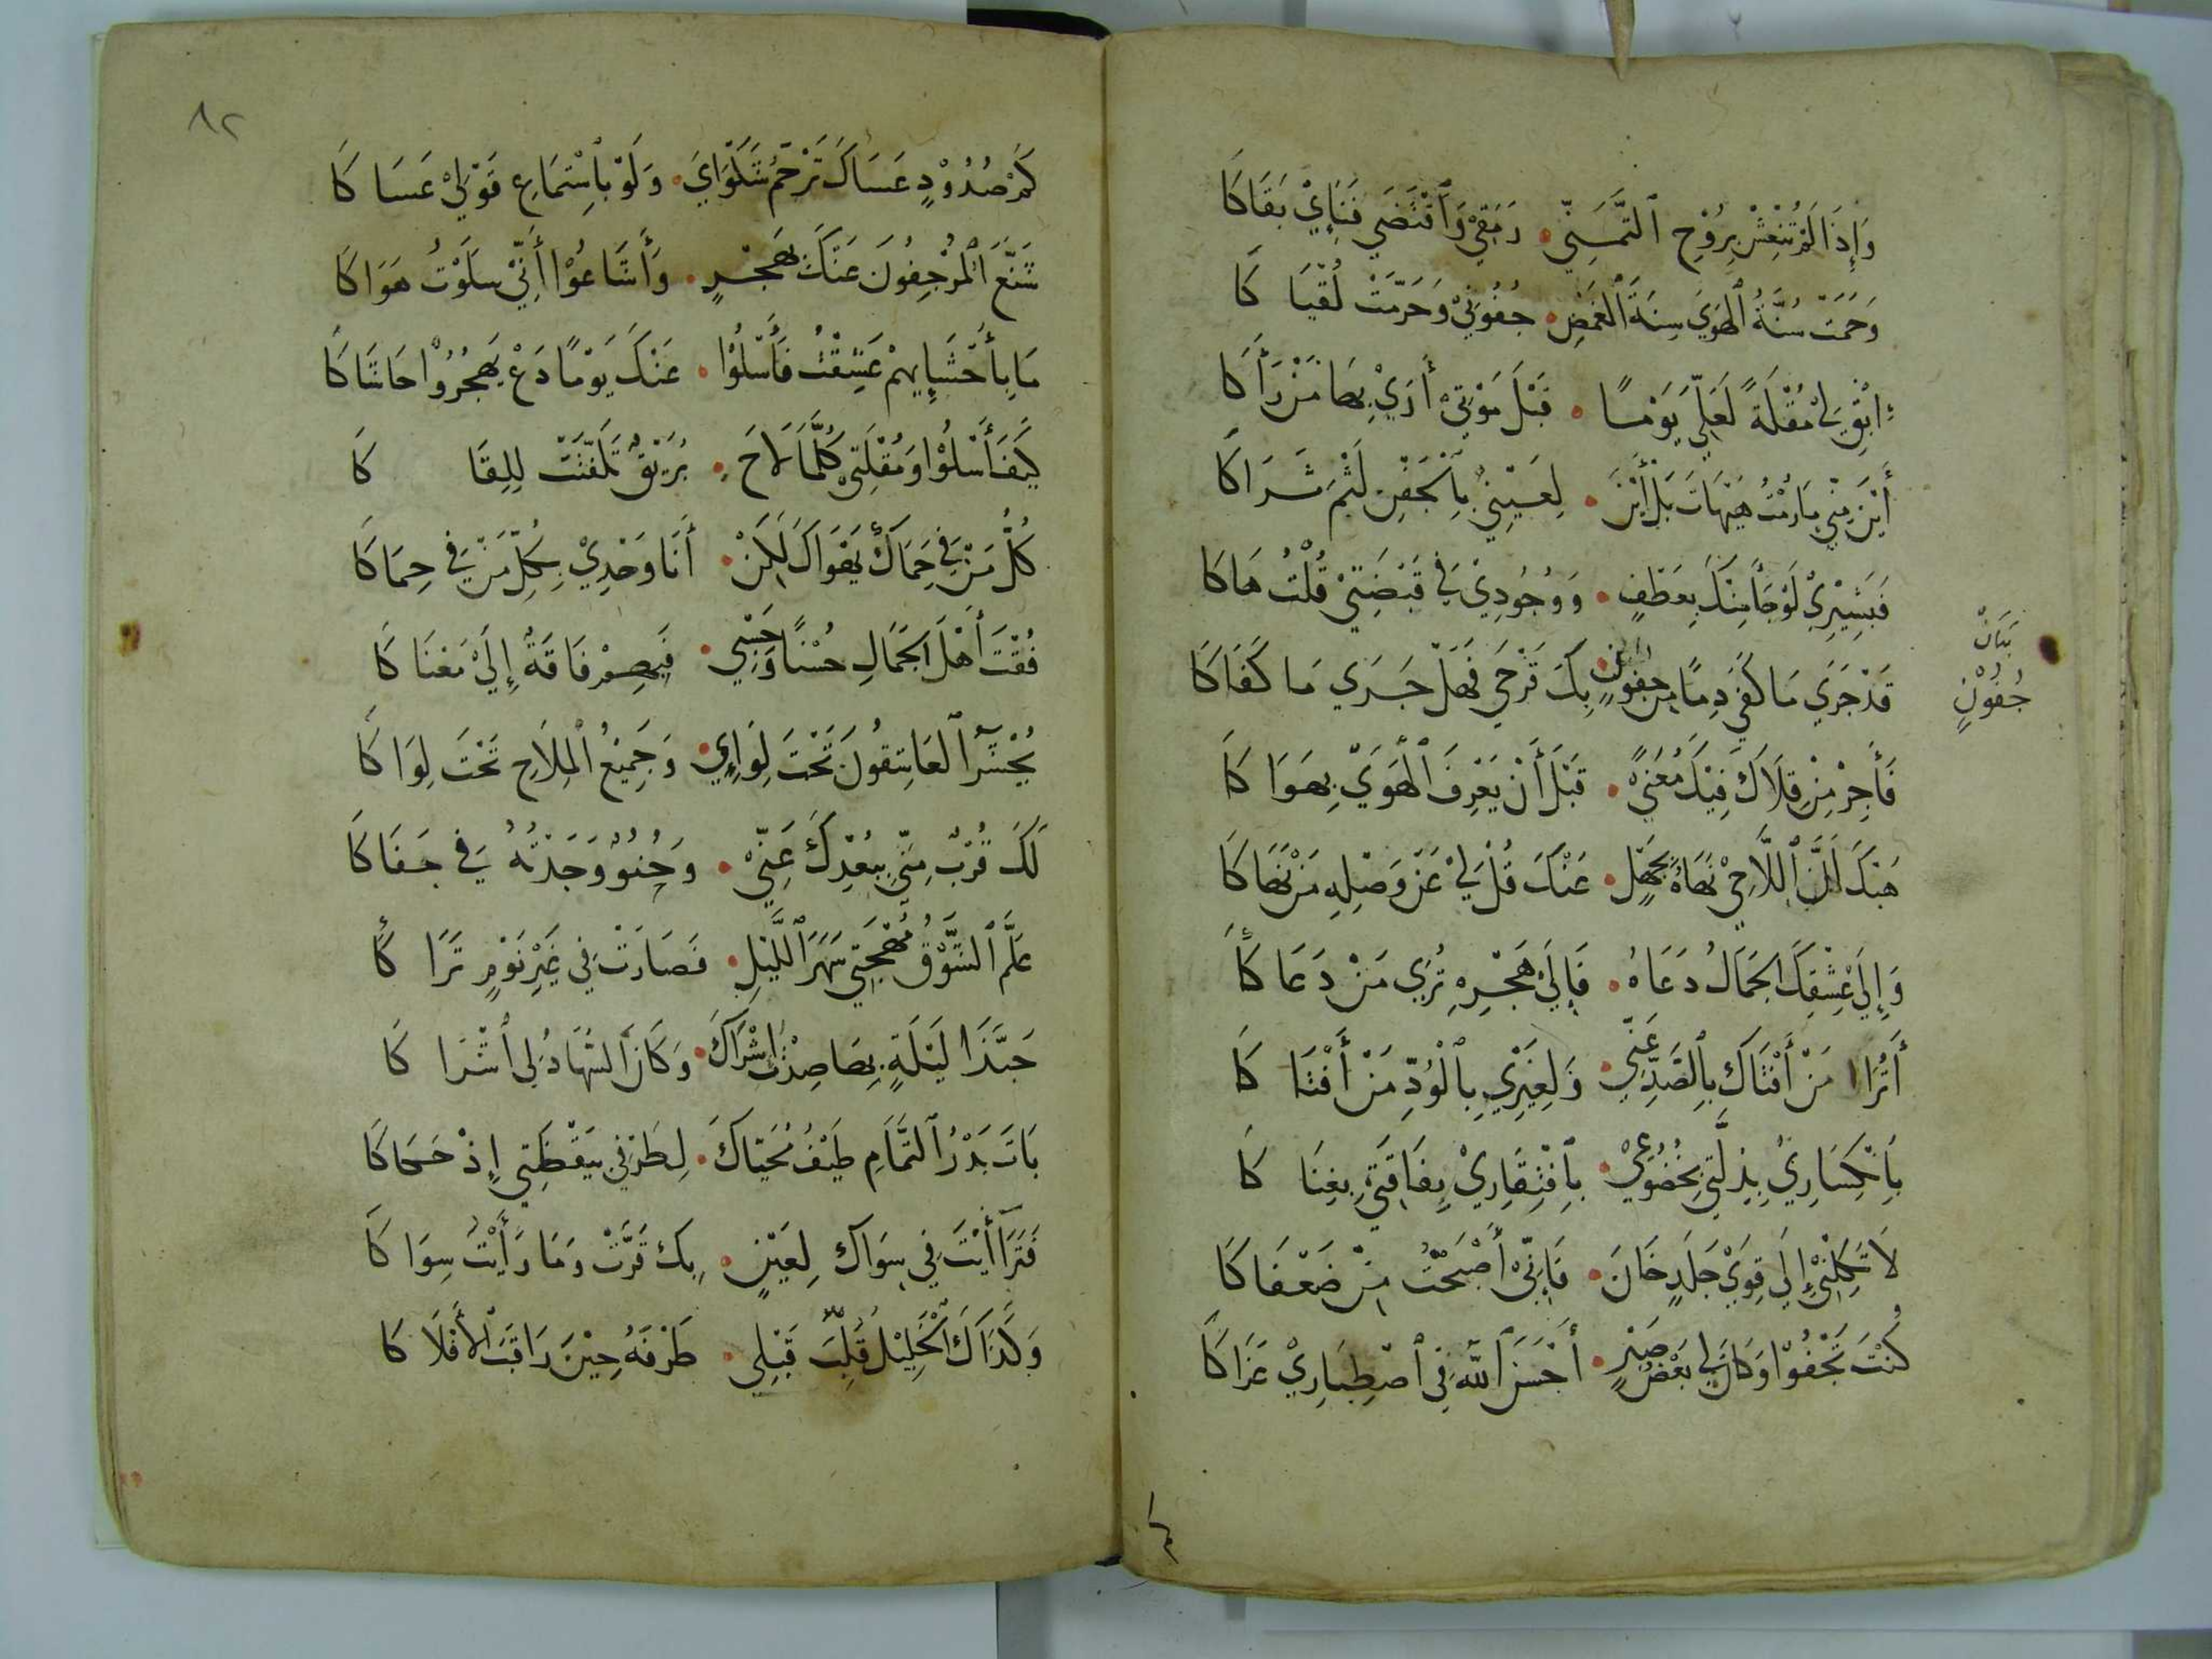 وَإِذَا لَمْ تُنْعِشْ بِرُوْحِ ٱلتَّمَنِّي • رَمَقِيْ وَٱقْتَضَي فَنَايِٕيْ بَقَاكَا
وَحَمَتْ سُنَّةُ ٱلهَوَي سِنَةَ ٱلغَمْضِ • جُفُوْنِيْ وَحَرَّمَتْ لُقْيَا كَا
اِبْقِ لِيْ مُقْلَةً لَعَلِّيَ يَوْمًا • قَبْلَ مَوْتِيْ أَرَيْ بِهَا مَنْ رَأَكَا
أَيْنَ مِنِّي مَا رُمْتُ هَيْهَاتَ بَلْ أَيْنَ • لِعَيْنِيْ بِٱلْجَفْنِ لَثْمُ ثَرَاكَا
فَبَشِيْرِيْ لَوْ جَأَ مِنْكَ بِعَطْفٍ • وَوُجُوْدِيْ فِي قَبْضَتِيْ قُلْتُ هَاكَا
قَدْ جَرَي مَا كَفَي دِمًا مِن جفونٍ • بِكَ قَرْحَي فَهَلْ جَرَي مَا كَفَاكَا
بيان
جُفُوْنٍ
فَأَجِرْ مِنْ قِلَاكَ فِيْكَ مُعَنيً • قَبْلَ أَنْ يَعْرِفَ ٱلْهَوَيْ بِهَوَا كَا
هَبْكَ أَنَّ ٱللَّاحِيْ نَهَاهُ بِجَهْلٍ • عَنْكَ قُلْ لِيْ عَنْ وَصْلِهِ مَنْ نَهَاكَا
وَإِلَي عِشْقِكَ ٱلجَمَالُ دَعَاهُ • فَإِلَي هَجْرِهِ تُرَي مَنْ دَعَاكَا
أَتُرَا مَنْ أَفْتَاكَ بِٱلصَّدِّ عَنِّي • وَلِغَيْرِيْ بِالْوُدِّ مَنْ أَفْتَا كَا
بِٱنْكِسَارِيْ بِذِلَّتِيْ بِخُضُوْعِيْ • بِٱفْتِقَارِيْ بِفَاقَتِيْ بِغِنَا كَا
لَا تَكِلْنِيْ إِلَي قِوَيْ جَلَدٍ خَانَ • فَإِنِّيْ أَصْبَحْتُ مِنْ ضَعَفَاكَا
كُنْتَ تَجْفُوْا وَكَانَ لِي بَعْضُ صَبْرٍ • أَحْسَنَ ٱللّٰهُ فِي ٱصْطِبَارِيْ عَزَاكَا
٨٢
كَمْ صُدُوْدٍ عَسَاكَ تَرْحَمُ شَكْوَايَ • وَلَوْ بِٱسْتِمَاعِ قَوْلِيْ عَسَا كَا
شَنَّعَ ٱلْمُرْجِفُونَ عَنْكَ بِهَجْرٍ • وَأَشَاعُوْا أَنِّيْ سَلَوْتُ هَوَاكَا
مَا بِأَحْشَايِٕهِمْ عَشِقْتُ فَأَسْلُوْا • عَنْكَ يَوْمًا دَعْ يَهْجُرُوْا حَاشَاكَا
كَيْفَ أَسْلُوْا وَمُقْلَتِيْ كُلَّمَا لَاحَ • بُرَيْقٌ تَلَفَّتَتْ لِلِقَا كَا
كُلُّ مَنْ فِي حِمَاكَ يَهْوَاكَ لٰكِنْ • أَنَا وَحْدِيْ بِكُلِّ مَنْ فِي حِمَاكَا
فُقْتَ أَهْلَ ٱلجَمَالِ حُسْنًا وَحُسْنَي • فَبِهِمْ فَاقَةٌ إِلَيْ مَعْنَا كَا
يُحْشَرُ ٱلعَاشِقُونَ تَحْتَ لِوَايِٕي • وَجَمِيْعُ ٱلْمِلَاحِ تَحْتَ لِوَا كَا
لَكَ قُرْبٌ مِنِّي بِبُعْدِكَ عَنِّي • وَحُنُوٌّ وَجَدْتُهُ فِي جَفَا كَا
عَلَّمَ ٱلشَّوْقُ مُهْجَتِي سَهَرَ ٱللَّيْلِ • فَصَارَتْ فِي غَيْرِ نَوْمٍ تَرَا كَا
حَبَّذَا لَيْلَةٍ بِهَا صِدْتُ إِسْرَاكَ • وَكَانَ ٱلسُّهَادُ لِي أَشْرَا كَا
بَاتَ بَدْرُ ٱلتَّمَامِ طَيْفُ مُحَيَّاكَ • لِطَرْفِي بِيَقْظَتِي إِذْ حَكَاكَا
فَتَرَأَأَيْتَ فِي سِوَاكَ لِعَيْنٍ • بِكَ قَرَّتْ وَمَا رَأَيْتُ سِوَا كَا
وَكَذَاكَ ٱلْخَلِيْلُ قَلَّبَ قَبْلِي • طَرْفَهُ حِيْنَ رَاقَبَ ٱلأَفْلَا كَا